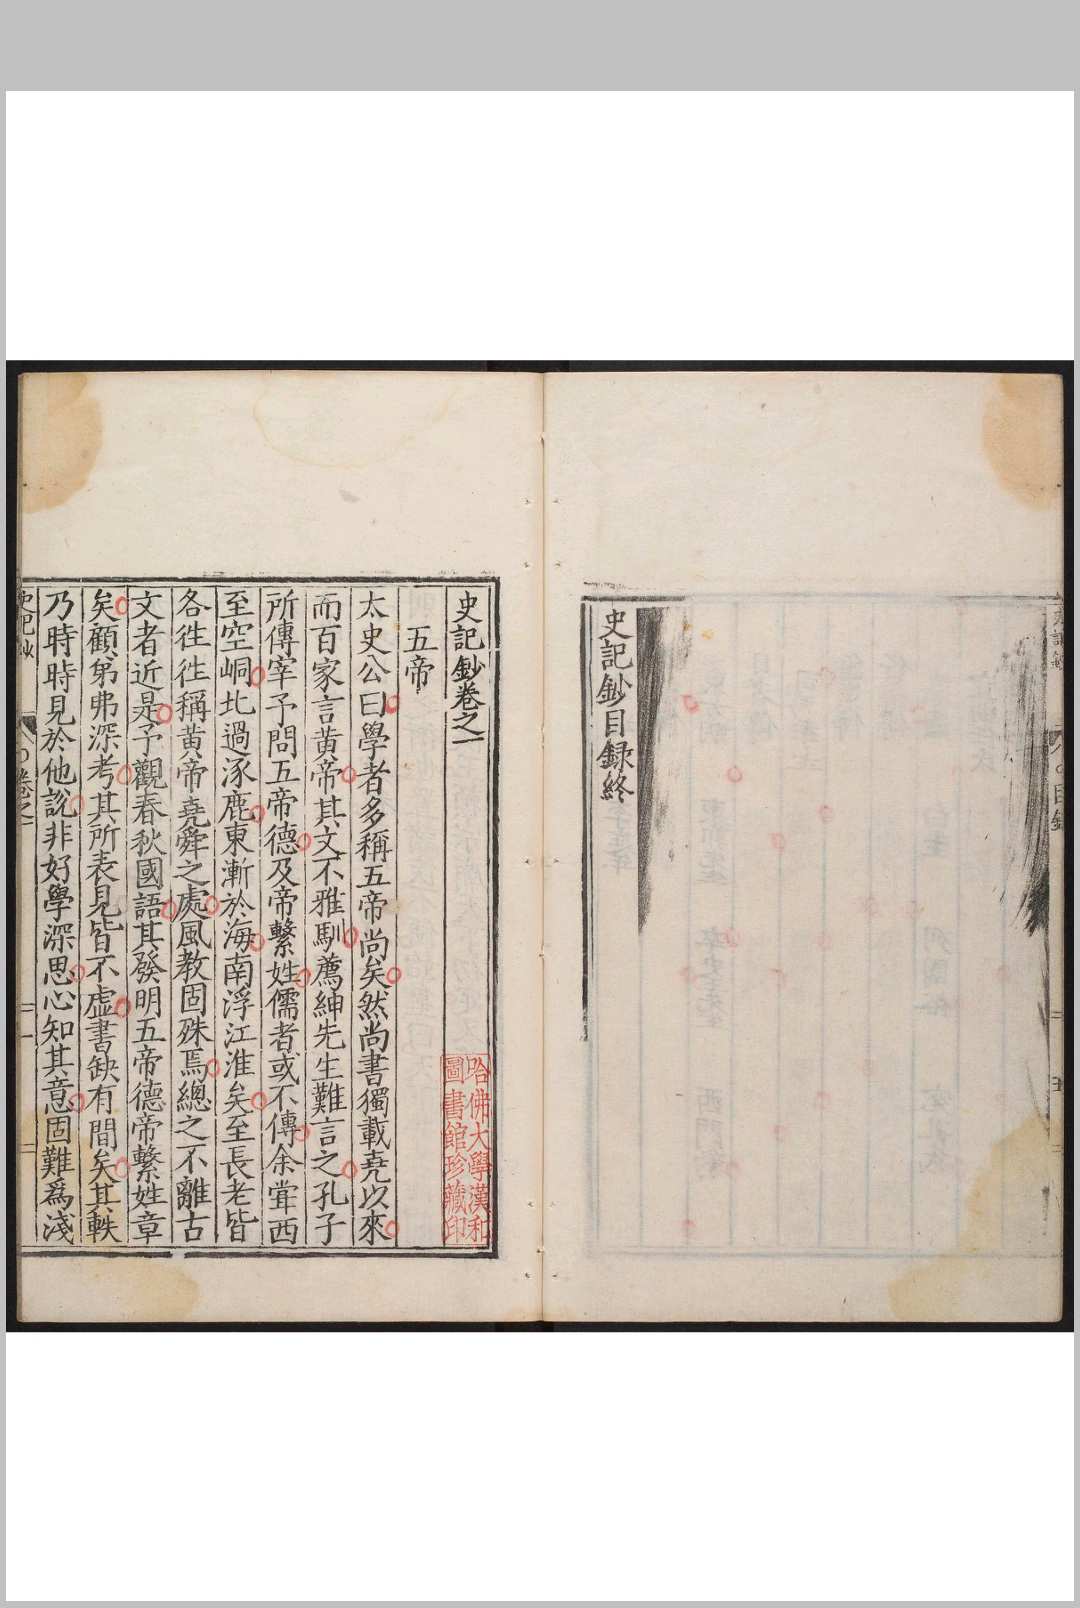 史記鈔目録終
史記鈔卷之一
五帝
太史公曰學者多稱五帝尚矣然尚書獨載堯以來
而百家言黃帝其文不雅馴薦紳先生難言之孔子
所傳宰予問五帝德及帝繫姓儒者或不傳余甞西
至空峒北過涿鹿東漸於海南浮江淮矣至長老皆
各往往稱黃帝堯舜之處風教固殊焉總之不離古
文者近是予觀春秋國語其發明五帝德帝繫姓章
矣顧弟弗深考其所表見皆不虛書缺有間矣其軼
乃時時見於他說非好學深思心知其意固難爲淺
哈佛大學漢和
圖書館珍藏印